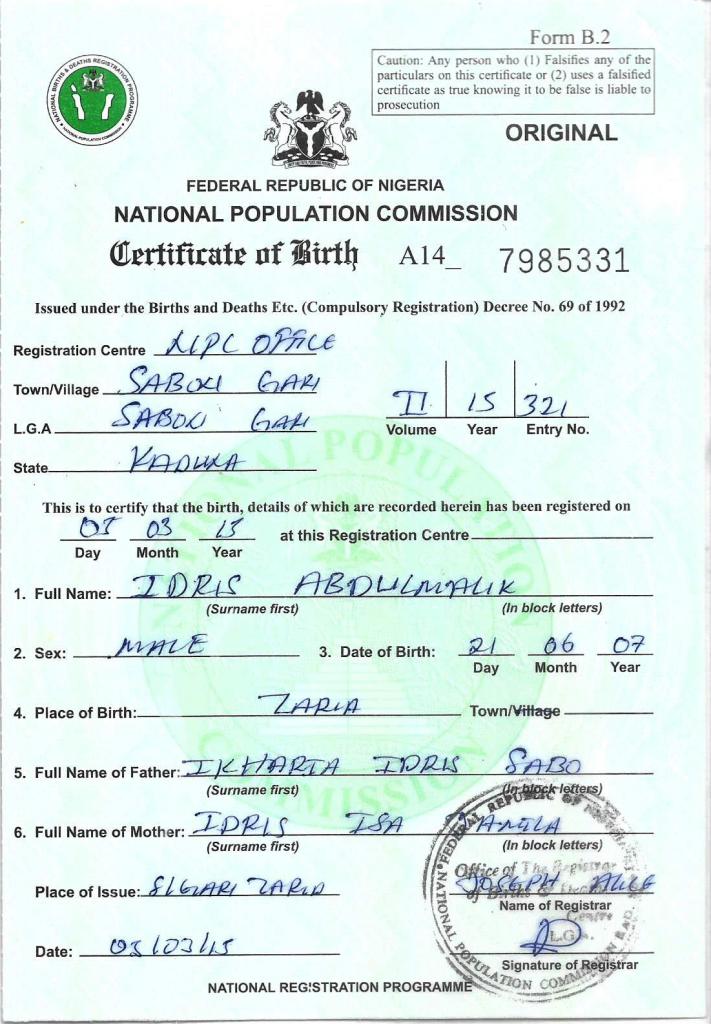 Form B.2
NATIONAL BIRTHS & DEATHS REGISTRATION PROGRAMME
NATIONAL POPULATION COMMISSION
Caution: Any person who (1) Falsifies any of the
particulars on this certificate or (2) uses a falsified
certificate as true knowing it to be false is liable to
prosecution
ORIGINAL
FEDERAL REPUBLIC OF NIGERIA
NATIONAL POPULATION COMMISSION
Certificate of Birth A14_ 7985331
Issued under the Births and Deaths Etc. (Compulsory Registration) Decree No. 69 of 1992
Registration Centre NPC OFFICE
Town/Village SABON GARI
L.G.A SABON GARI
II 15 321
Volume Year Entry No.
State KADUNA
This is to certify that the birth, details of which are recorded herein has been registered on
03 15 at this Registration Centre
Day Month Year
1. Full Name: IDRIS ABDULMALIK
(Surname first) (In block letters)
2. Sex: MALE 3. Date of Birth: 21 06 07
Day Month Year
4. Place of Birth: ZARIA Town/Village
5. Full Name of Father: IKHARIA IDRIS SABO
(Surname first) (In block letters)
6. Full Name of Mother: IDRIS ISA
(Surname first) (In block letters)
Place of Issue: S/GARI ZARIA
JOSEPH ALICE
Name of Registrar
Office of The Registrar
of Births & Deaths
Centre
L.G.A.
Date: 03/15
Signature of Registrar
NATIONAL POPULATION COMMISSION
FEDERAL REPUBLIC OF
NATIONAL REGISTRATION PROGRAMME